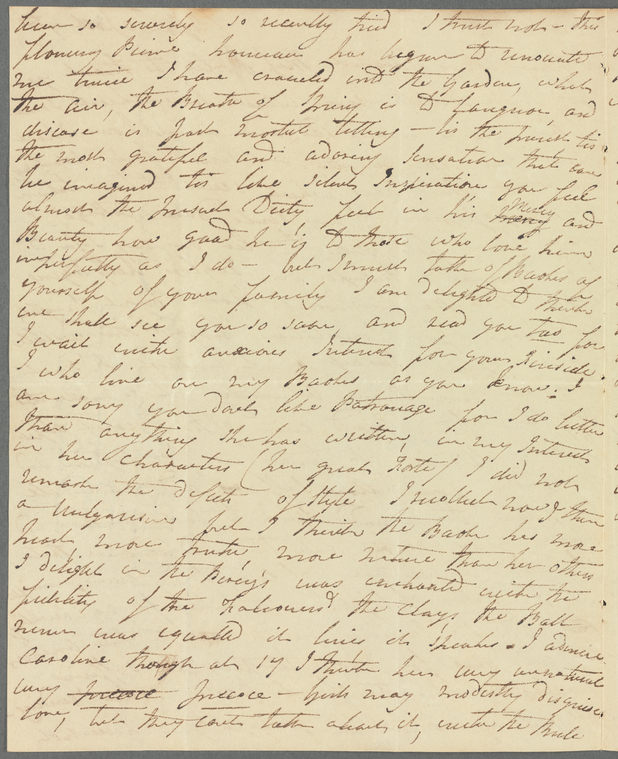 been so severely so recently tried I trust not – This
flowing Prune has begun to renovate
me twice I have crawled into the Garden, what
the air, the Breath of Spring is to Languor, and
disease is past mortal telling – is the purest tis
the most grateful and adoring Sensation that can
be imagined tis like silent Inspiration you feel
almost the present Deity feel in his Mercy and
Beauty how good he is to those who love him
 as I do – but I must talk of Books of
yourself of your family I am delighted to think
we shall see you so soon, and read you too for
I wait with anxious Interest for your
I who live on my Books as you know. I
am sorry you dont like Patronage for I do better
than anything she has written, in my Interest
in her characters (her great Forte) I did not
remark the defects of Style I recollect now & then
a Vulgarism but I think the Book has more
heart more truth, more nature than her others
I delight in the Percy's was enchanted with the
fidelity of the Falconers the Clays the Ball
never was equalled it lives it speaks – I admire
Caroline though at 19 I think her very unnatural
very precoce precoce – Girls may modestly disguise
love, but they cant talk about it, with the